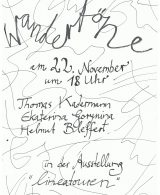 Wandertöne
am 22. November
um 18 Uhr
Thomas Kadermann
Ekaterina Gorynina
Helmut Bleffert
in der Ausstellung
"lineatouren"